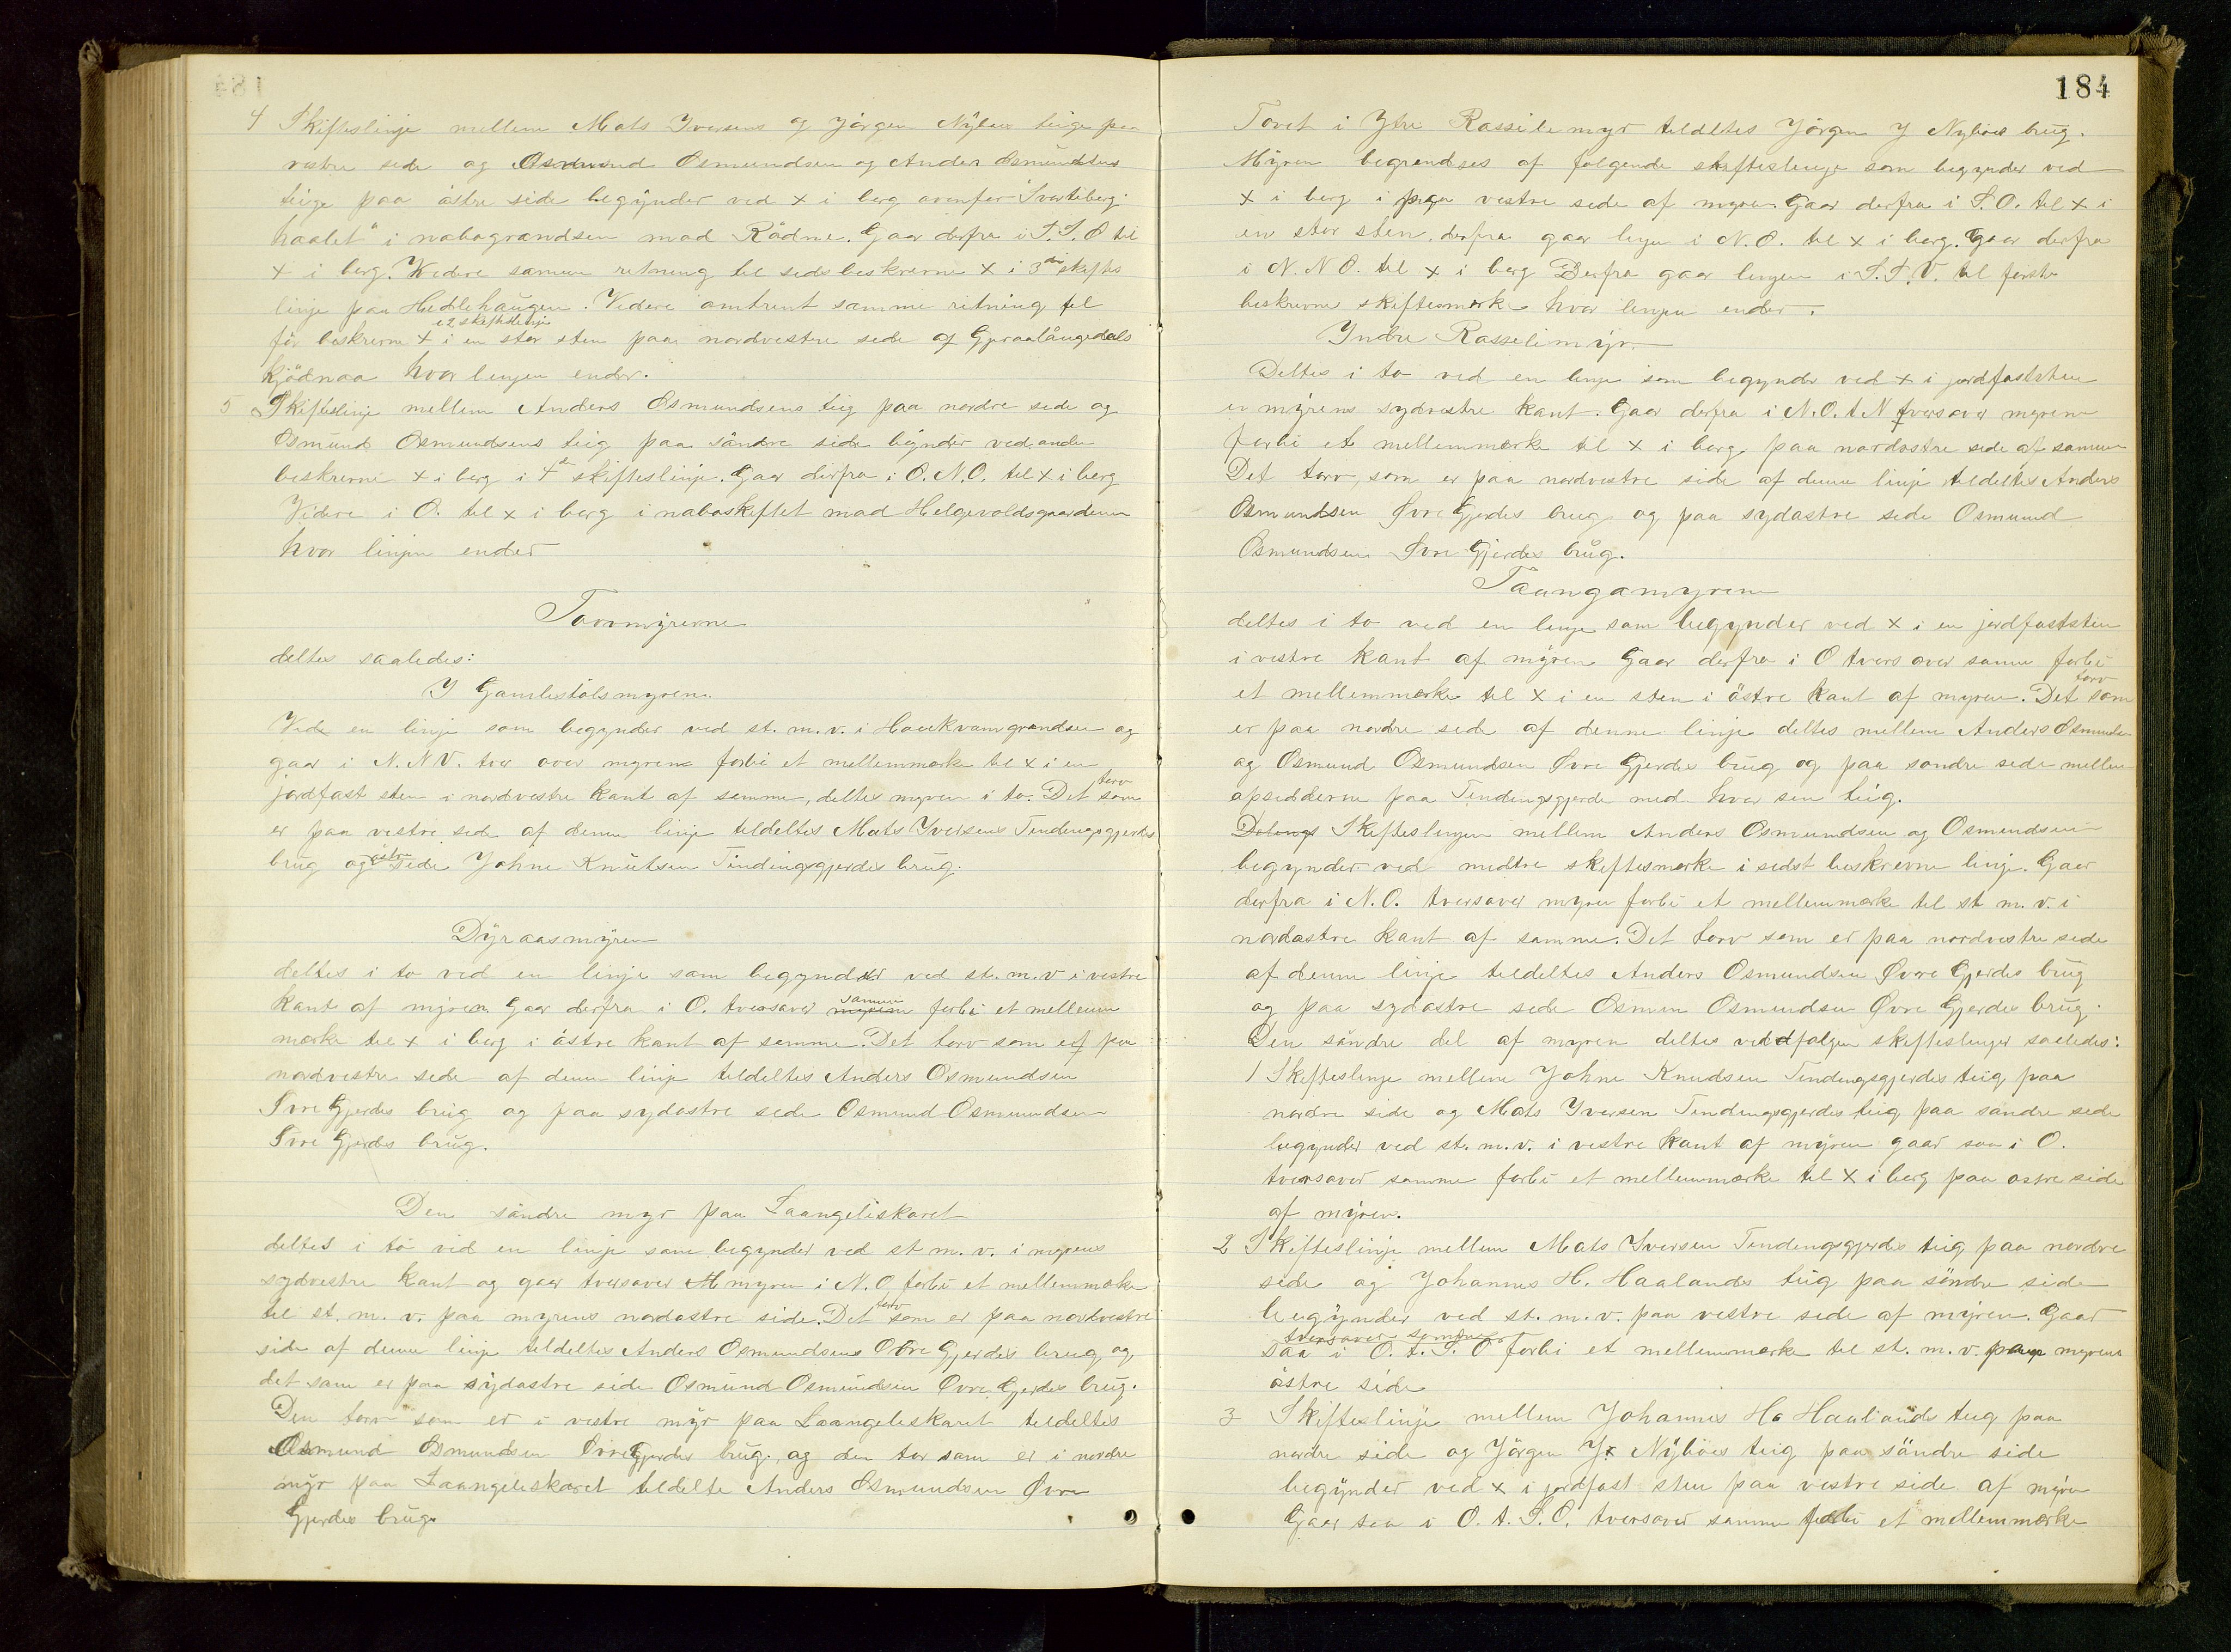 4 Skifteslinje mellem Mats Iversens og Jörgen Nybøes teige paa
vestre side og Osmund Osmundsen og Anders Osmundsens
teige paa østre side begynder ved x i berg ovenfor "Svartiberg-
haalet" i nabograndsen mod Rådne. Gaar derfra i S.S.O til
x i berg. Videre samme retning til sidsbeskrevne x i 3die skiftes
linje paa Hedlehaugen. Videre omtrent samme retning til
i 2 skifteslinje
før beskrevne x i en stor sten paa nordvestre side af Gjeraalangedals
kjødnaa hvor linjen ender.
5 Skifteslinje mellem Anders Osmundsens teig paa nordre side og
Osmund Osmundsens teig paa søndre side bynder ved anden
beskrevne x i berg i 4de skifteslinje. Gaar derfra i O.N.O. til x i berg
Videre i O. til x i berg i naboskiftet mod Helgevoldsgaardenn
hvor linjen ender
Torvmyrerne
deltes saaledes:
I Gamlestølsmyren.
Ved en linje som begynder ved st. m. v. i Haukvamgrandsen og
gaar i N.NV. tver over myren forbi et mellemmærke til x i en
jordfast sten i nordvestre kant af samme, deltes myren i to. Det torv som
er paa vestre side af denne linje tildeltes Mats Iversens Tendingsgjerdes
brug og østre side Johne Knutsen Tindingsgjerdes brug.
Dyraasmyren
deltes i to ved en linje som begynder ved st. m. v i vestre
kant af myren Gaar derfra i O. tversover myren samme forbi et mellem
mærke til x i berg i østre kant af samme. Det torv som er paa
nordvestre side af denne linje tildeltes Anders Osmundsen
Øvre Gjerdes brug og paa sydøstre side Osmund Osmundsen
Øvre Gjerdes brug.
Den søndre myr paa Laangeliskaret
deltes i to ved en linje som begynder ved st m. v. i myrens
sydvestre kant og gaar tversover myren i N.O. forbi et mellemmærke
til st. m. v. paa myrens nordøstre side. Det torv som er paa nordvestre
side af denne linje tildeltes Anders Osmundsens Øvre Gjerdes brug og
det som er paa sydøstre side Osmund Osmundsen Øvre Gjerdes brug.
Den torv som er i vestre myr paa Laangeleskaret tildeltes
Osmund Osmundsen Øvre Gjerdes brug, og den tor som er i nordre
myr paa Laangeleskaret tildelte Anders Osmundsen Øvre
Gjerdes brug.
184
Tovet i Ytre Rassilemyr tildeltes Jörgen J Nybøes brug.
Myren begrendses af følgende skifteslinje som begynder ved
x i berg i paa vestre side af myren. Gaar derfra i S.O. til x i
en stor sten, derfra gaar linjen i N.O. til x i berg. Gaar derfra
i N.NO. til x i berg Derfra gaar linjen i S.S.V. til første
beskrevne skiftesmerke hvor linjen ender.
Indre Rasselimyr.
Deltes i to ved en linje som begynder ved x i jordfaststen
i myrens sydvestre kant. Gaar derfra i N.O.t.N tversover myren
forbi et mellemmærk til x i berg paa nordøstre side af samme
Det torv, som er paa nordvestre side af denne linje tildeltes Anders
Osmundsen Øvre Gjerdes brug og paa sydøstre side Osmund
Osmundsen Øvre Gjerdes brug.
Taangamyren
deltes i to ved en linje som begynder ved x i en jordfaststen
i vestre kant af myren Gaar derfra i O tvers over samme forbi
et mellemmærke til x i en sten i østre kant af myren. Det torv som
er paa nordre side af denne linje deltes mellem Anders Osmundsen
og Osmund Osmundsen Øvre Gjerdes brug og paa søndre side mellem
opsidderne paa Tendingsgjerde med hver sin teig.
Delings Skifteslinjen mellem Anders Osmundsen og Osmundsen
begynder ved midtre skiftesmerke i sidst beskrevne linje. Gaar
derfra i N.O. tversover myren forbi et mellemmærke til st m. v. i
nordøstre kant af samme. Det torv som er paa nordvestre side
af denne linje tildeltes Anders Osmundsen Øvre Gjerdes brug
og paa sydøstre side Osmun Osmundsen Øvre Gjerdes brug.
Den søndre del af myren deltes ved følgen skifteslinjer saaledes:
1 Skifteslinje mellem Johne Knudsen Tendingsgjerdes teig paa
nordre side og Mats Iversen Tendingsgjerdes teig paa søndre side
begynder ved st. m. v. i vestre kant af myren gaar saa i O.
tversover samme forbi et mellemmærke til x i berg paa østre side
af myren.
2 Skifteslinje mellem Mats Iversen Tendingsgjerdes teig paa nordre
side og Johannes H. Haalands teig paa søndre side
begynder ved st. m. v. paa vestre side af myren. Gaar
tversover samme
saa i O.t.S.O forbi et mellemmærke til st. m. v. paa myrens
østre side
3 Skifteslinje mellem Johannes H. Haalands teig paa
nordre side og Jörgen J. Nybøes teig paa søndre side
begynder ved x i jordfast sten paa vestre side af myren
Gaar saa i O.t.S.O. tversover samme forbi et mellemmærke